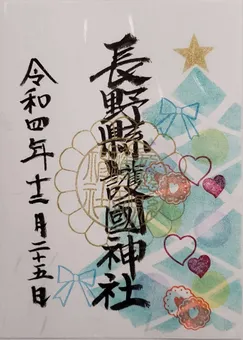 長野縣護國神社
令和四年十二月二十五日